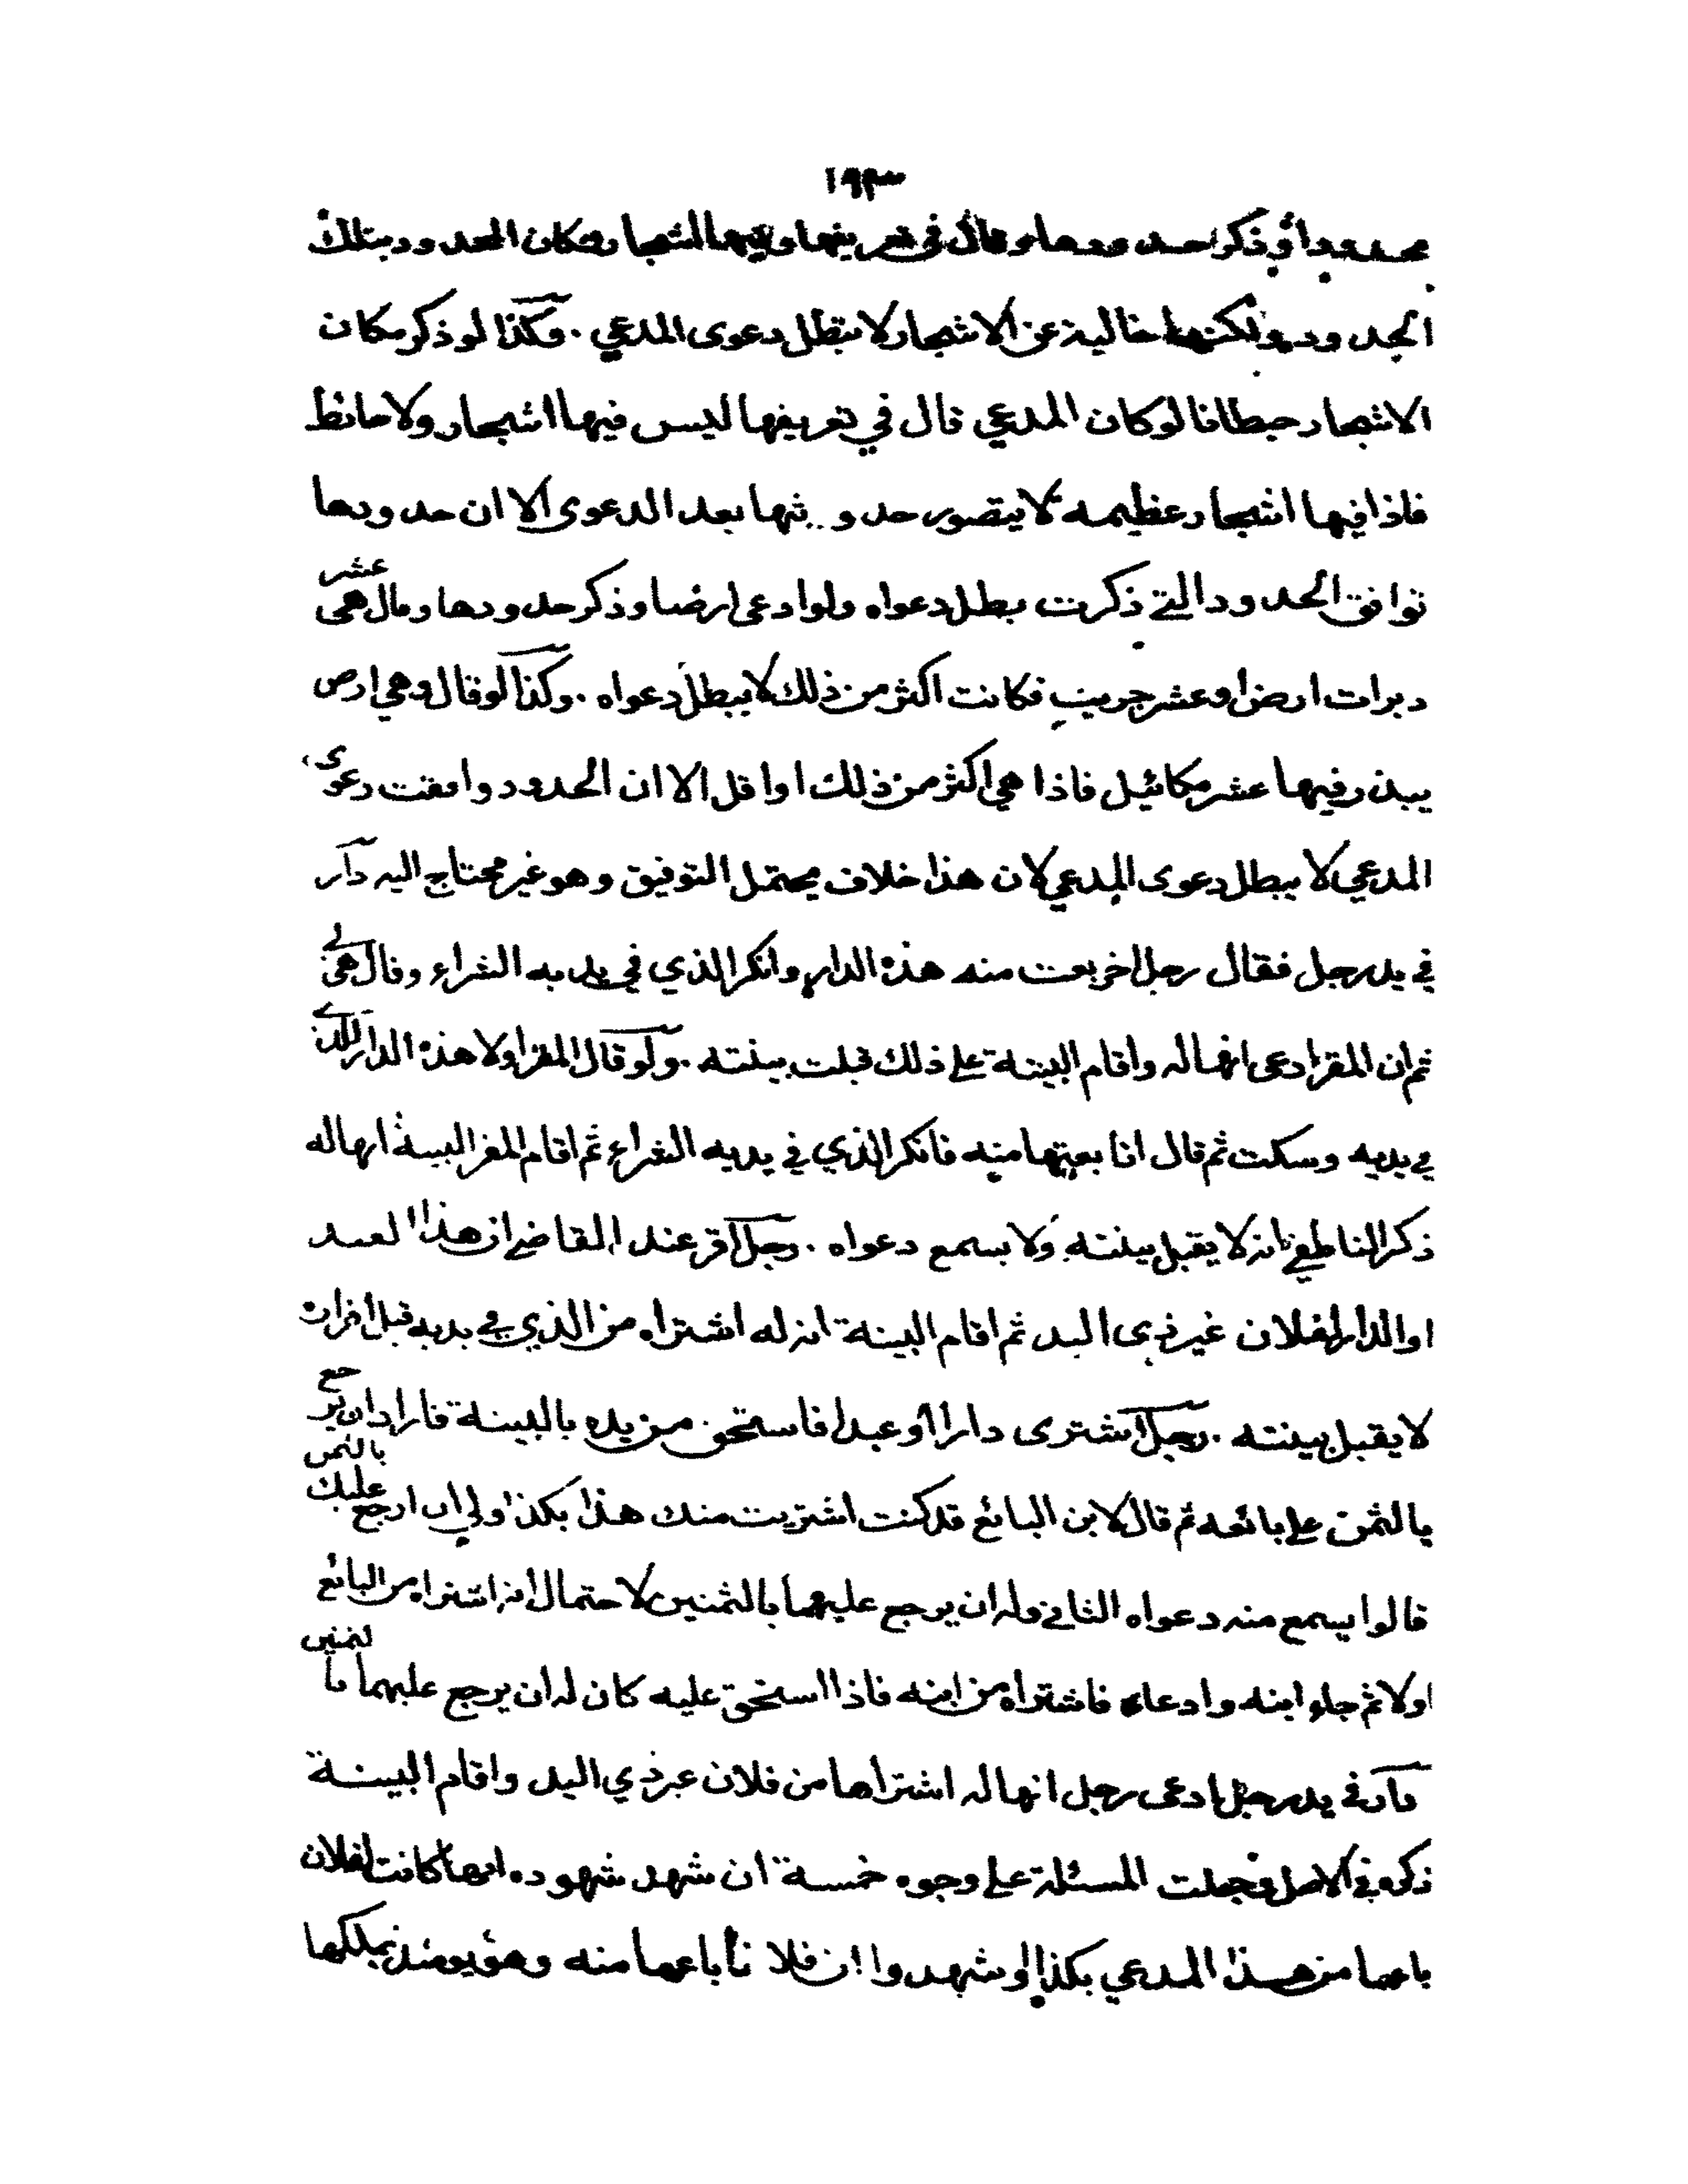 ١٩٣
محدودا وذكر حدودها وقال في تعريفها وفيها اشجار فكان المحدود بتلك
الحدود ولكنها خالية عن الاشجار لا تبطل دعوى المدعي . وكذا لو ذكر مكان
الاشجار حيطانا لو كان المدعي قال في تعريفها ليس فيها اشجار ولا حائط
فاذا فيها اشجار عظيمه لا يتصور حدوثها بعد الدعوى الا ان حدودها
توافق الحدود التي ذكرت بطل دعواه ولو ادعى ارضا وذكر حدودها وقال هي عشر
دبرات ارض او عشر جريب فكانت اكثر من ذلك لا يبطل دعواه . وكذا لو قال وهي ارض
يبذر فيها عشر مكائيل فاذا هي اكثر من ذلك او اقل الا ان الحدود وافقت دعوى
المدعي لا يبطل دعوى المدعي لان هذا خلاف يحتمل التوفيق وهو غير محتاج اليه دار
في يد رجل فقال رجل اخر بعت منه هذه الدار وانكر الذي في يديه الشراء وقال هي لي
ثم ان المقر ادعى انها له واقام البينة على ذلك قبلت بينته . ولو قال المقر اولا هذه الدار للذي
في يديه وسكت ثم قال انا بعتها منه فانكر الذي في يديه الشراء ثم اقام المقر البينة انها له
ذكر الناطفي انه لا يقبل بينته ولا يسمع دعواه . رجل اقر عند القاضي ان هذا العبد
او الدار لفلان غير ذي اليد ثم اقام البينة انه له اشتراه من الذي في يديه قبل اقراره
لا يقبل بينته . رجل اشترى دارا او عبدا فاستحق من يده بالبينة فاراد ان يرجع
بالثمن على بائعه ثم قال لابن البائع قد كنت اشتريت منك هذا بكذا ولي ان ارجع عليك بالثمن
قالوا يسمع منه دعواه الثاني وله ان يرجع عليهما بالثمنين لاحتمال انه اشتراه من البائع
اولا ثم جاء ابنه وادعاه فاشتراه من ابنه فاذا استحق عليه كان له ان يرجع عليهما بالثمنين
دار في يد رجل ادعى رجل انها له اشتراها من فلان غير ذي اليد واقام البينة
ذكره في الاصل وجعلت المسئلة على وجوه خمسة ان شهد شهوده انها كانت لفلان
باعها من هذا المدعي بكذا او شهدوا ان فلانا باعها منه وهو يومئذ يملكها